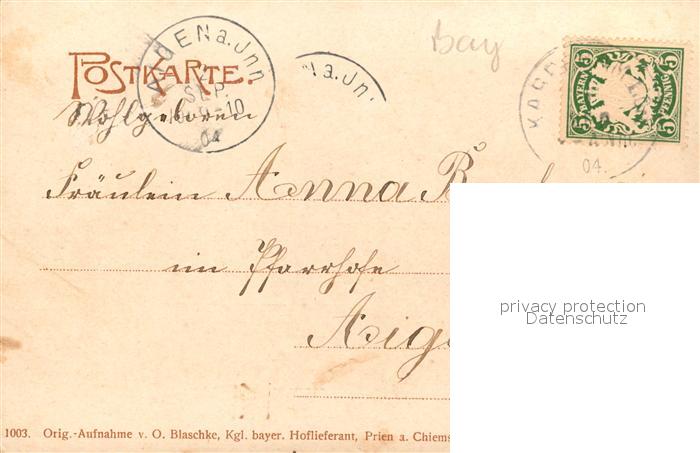 Bay
POSTKARTE.
a. Jnn
SEP.
04
a. Jnn
5 BAYERN 5 PFENNIG
04.
Wohlgeboren
Fräulein Anna B
im Pfarrhofe
Aig
privacy protection
Datenschutz
1003. Orig.-Aufnahme v. O. Blaschke, Kgl. bayer. Hoflieferant, Prien a. Chiems